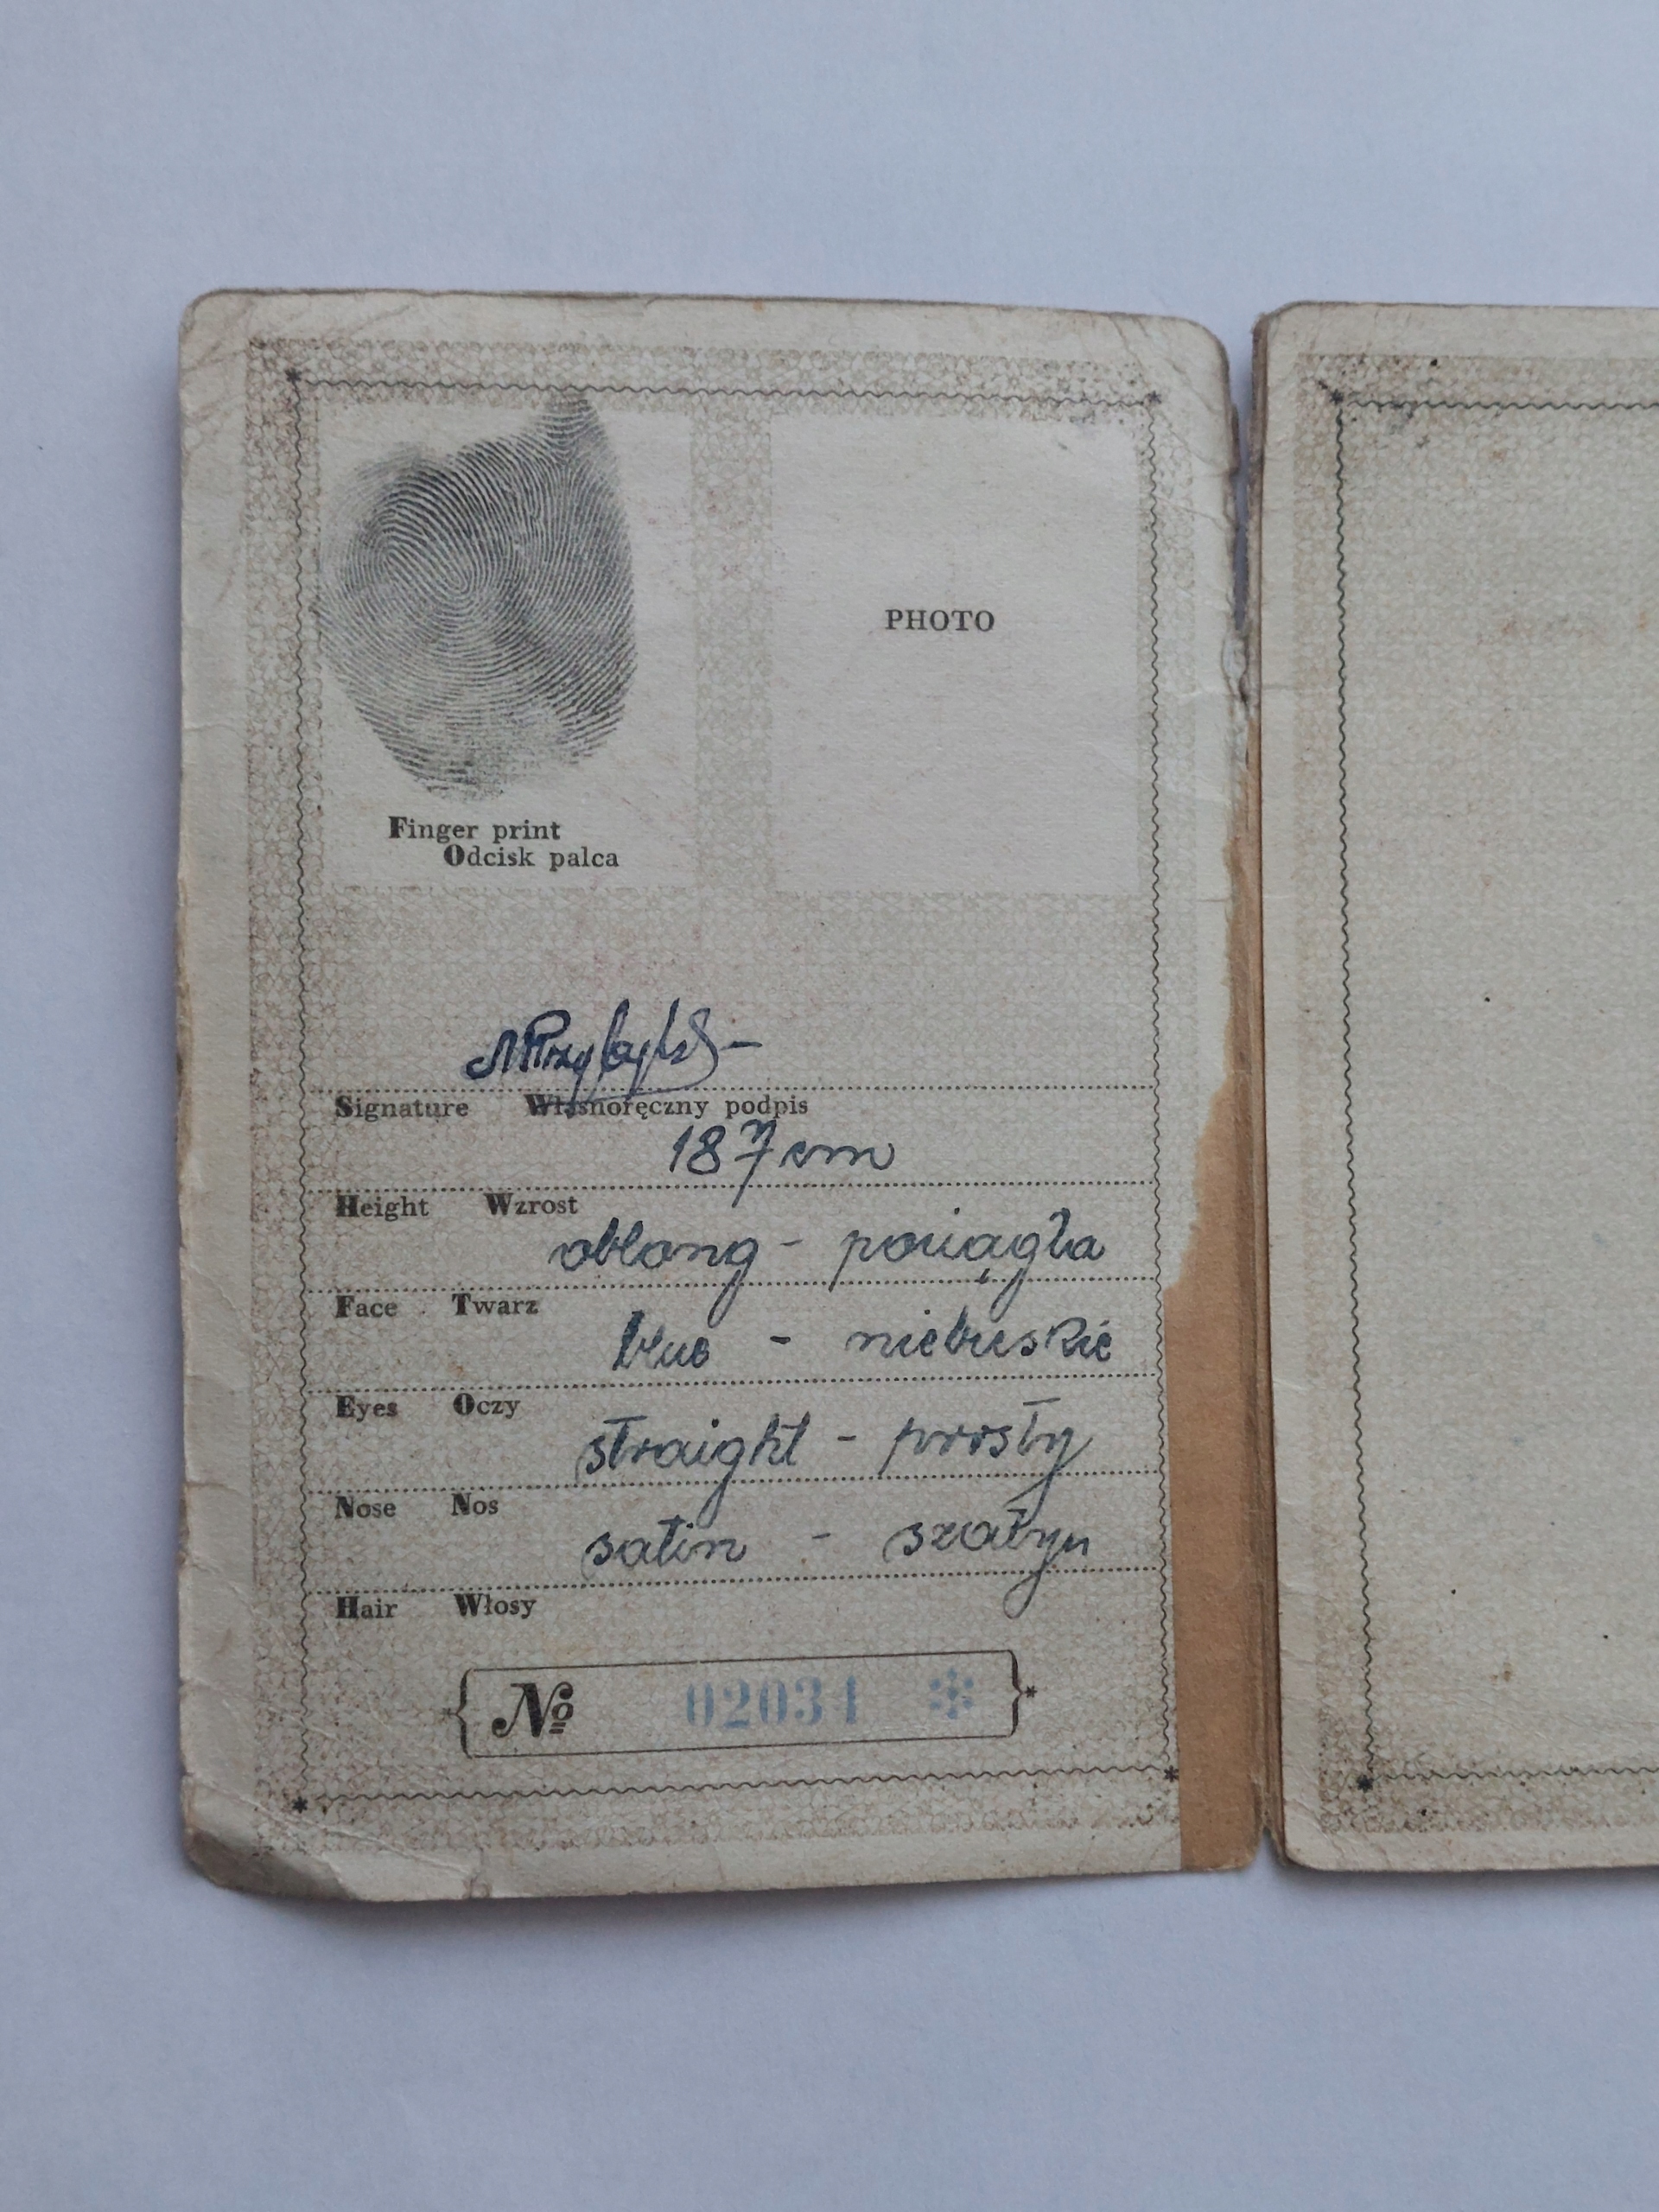 PHOTO
Finger print
Odcisk palca
Signature Własnoręczny podpis
187 cm
Height Wzrost
oblong - pociągła
Face Twarz
blue - niebieskie
Eyes Oczy
straight - prosty
Nose Nos
satin - szatyn
Hair Włosy
№ 02034 *